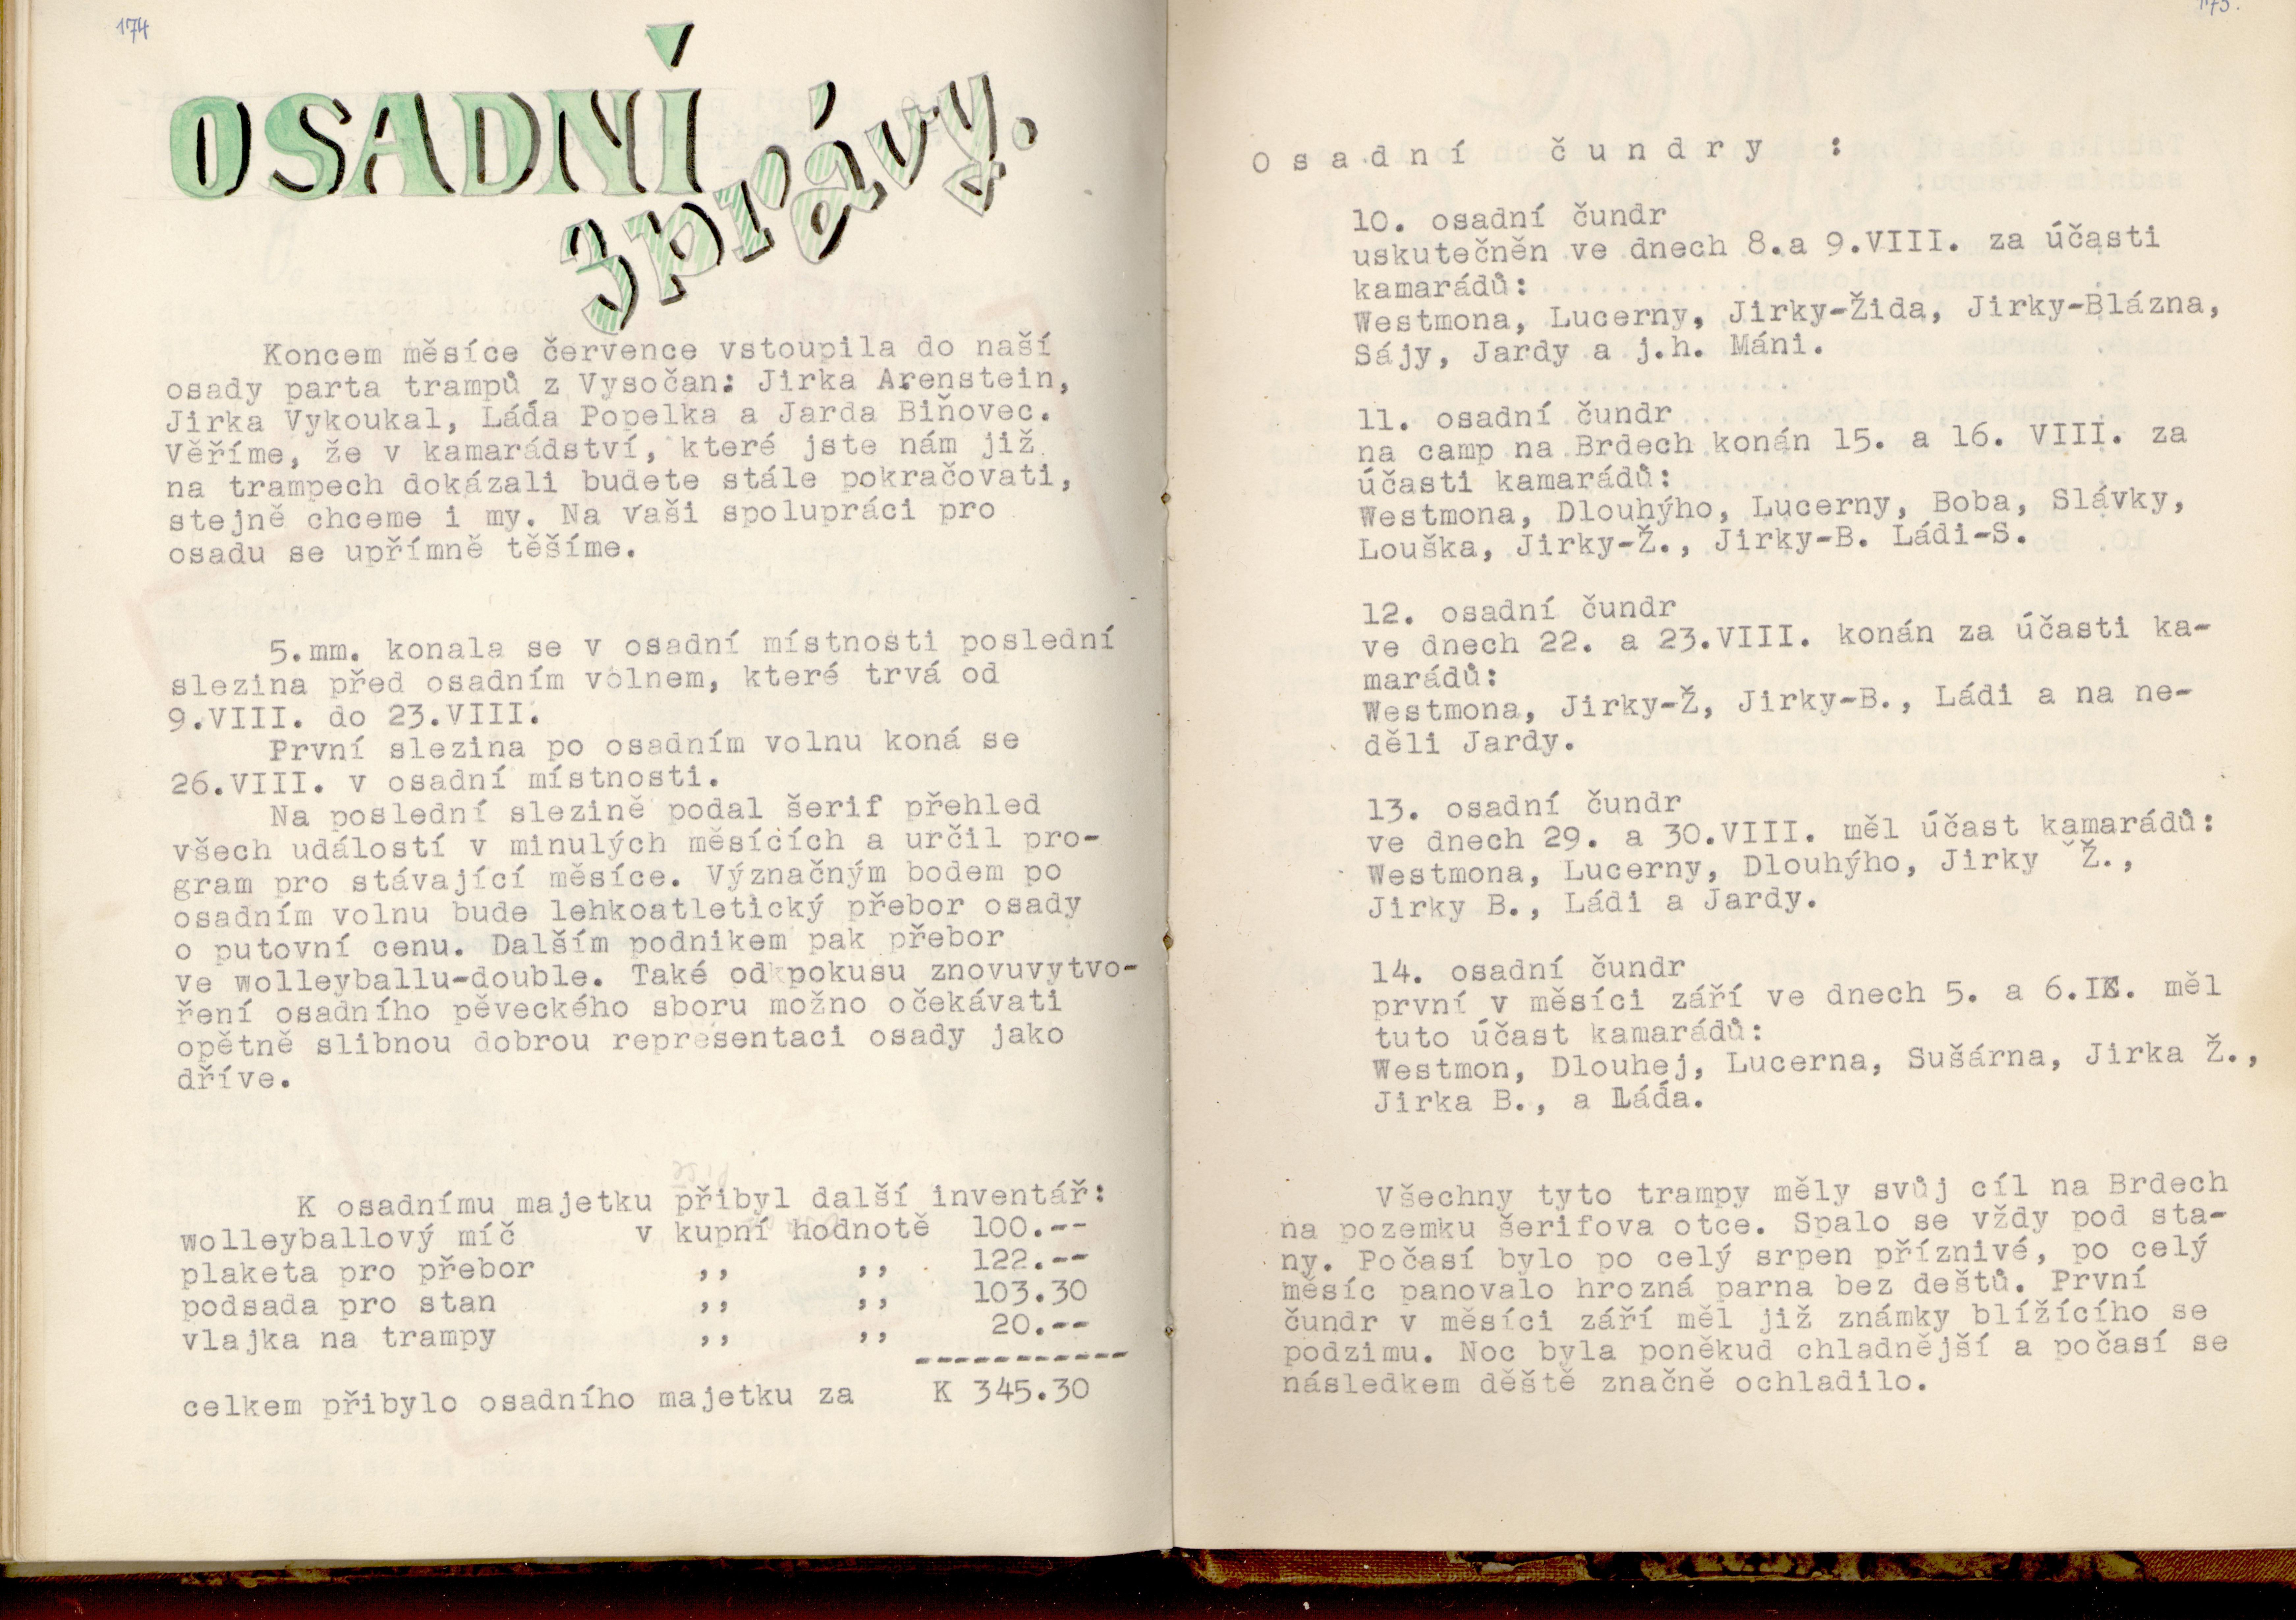 174
OSADNÍ
zprávy.
Koncem měsíce července vstoupila do naší
osady parta trampů z Vysočan: Jirka Arenstein,
Jirka Vykoukal, Láďa Popelka a Jarda Biňovec.
Věříme, že v kamarádství, které jste nám již
na trampech dokázali budete stále pokračovati,
stejně chceme i my. Na vaši spolupráci pro
osadu se upřímně těšíme.
5.mm. konala se v osadní místnosti poslední
slezina před osadním volnem, které trvá od
9.VIII. do 23.VIII.
První slezina po osadním volnu koná se
26.VIII. v osadní místnosti.
Na poslední slezině podal šerif přehled
všech událostí v minulých měsících a určil pro-
gram pro stávající měsíce. Význačným bodem po
osadním volnu bude lehkoatletický přebor osady
o putovní cenu. Dalším podnikem pak přebor
ve wolleyballu-double. Také od pokusu znovuvytvo-
ření osadního pěveckého sboru možno očekávati
opětně slibnou dobrou representaci osady jako
dříve.
K osadnímu majetku přibyl další inventář:
wolleyballový míč v kupní hodnotě 100.--
plaketa pro přebor ,, ,, 122.--
podsada pro stan ,, ,, 103.30
vlajka na trampy ,, ,, 20.--
-----------
celkem přibylo osadního majetku za K 345.30
175.
Osadní čundry :
10. osadní čundr
uskutečněn ve dnech 8.a 9.VIII. za účasti
kamarádů:
Westmona, Lucerny, Jirky-Žida, Jirky-Blázna,
Sájy, Jardy a j.h. Máni.
11. osadní čundr
na camp na Brdech konán 15. a 16. VIII. za
účasti kamarádů:
Westmona, Dlouhýho, Lucerny, Boba, Slávky,
Louška, Jirky-Ž., Jirky-B. Ládi-S.
12. osadní čundr
ve dnech 22. a 23.VIII. konán za účasti ka-
marádů:
Westmona, Jirky-Ž, Jirky-B., Ládi a na ne-
děli Jardy.
13. osadní čundr
ve dnech 29. a 30.VIII. měl účast kamarádů:
Westmona, Lucerny, Dlouhýho, Jirky ˇŽ.,
Jirky B., Ládi a Jardy.
14. osadní čundr
první v měsíci září ve dnech 5. a 6.IX. měl
tuto účast kamarádů:
Westmon, Dlouhej, Lucerna, Sušárna, Jirka Ž.,
Jirka B., a Láďa.
Všechny tyto trampy měly svůj cíl na Brdech
na pozemku šerifova otce. Spalo se vždy pod sta-
ny. Počasí bylo po celý srpen příznivé, po celý
měsíc panovalo hrozná parna bez deštů. První
čundr v měsíci září měl již známky blížícího se
podzimu. Noc byla poněkud chladnější a počasí se
následkem děště značně ochladilo.